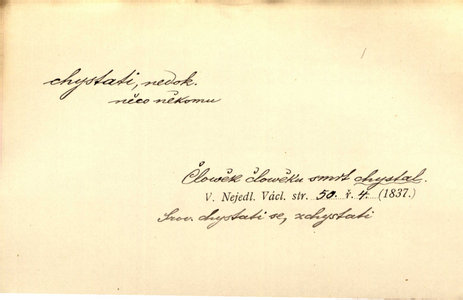 chystati, nedok.
něco někomu
Člowěk člowěku smrt chystal.
V. Nejedl. Václ. str. 50. ř. 4. (1837.)
Srov. chystati se, zchystati